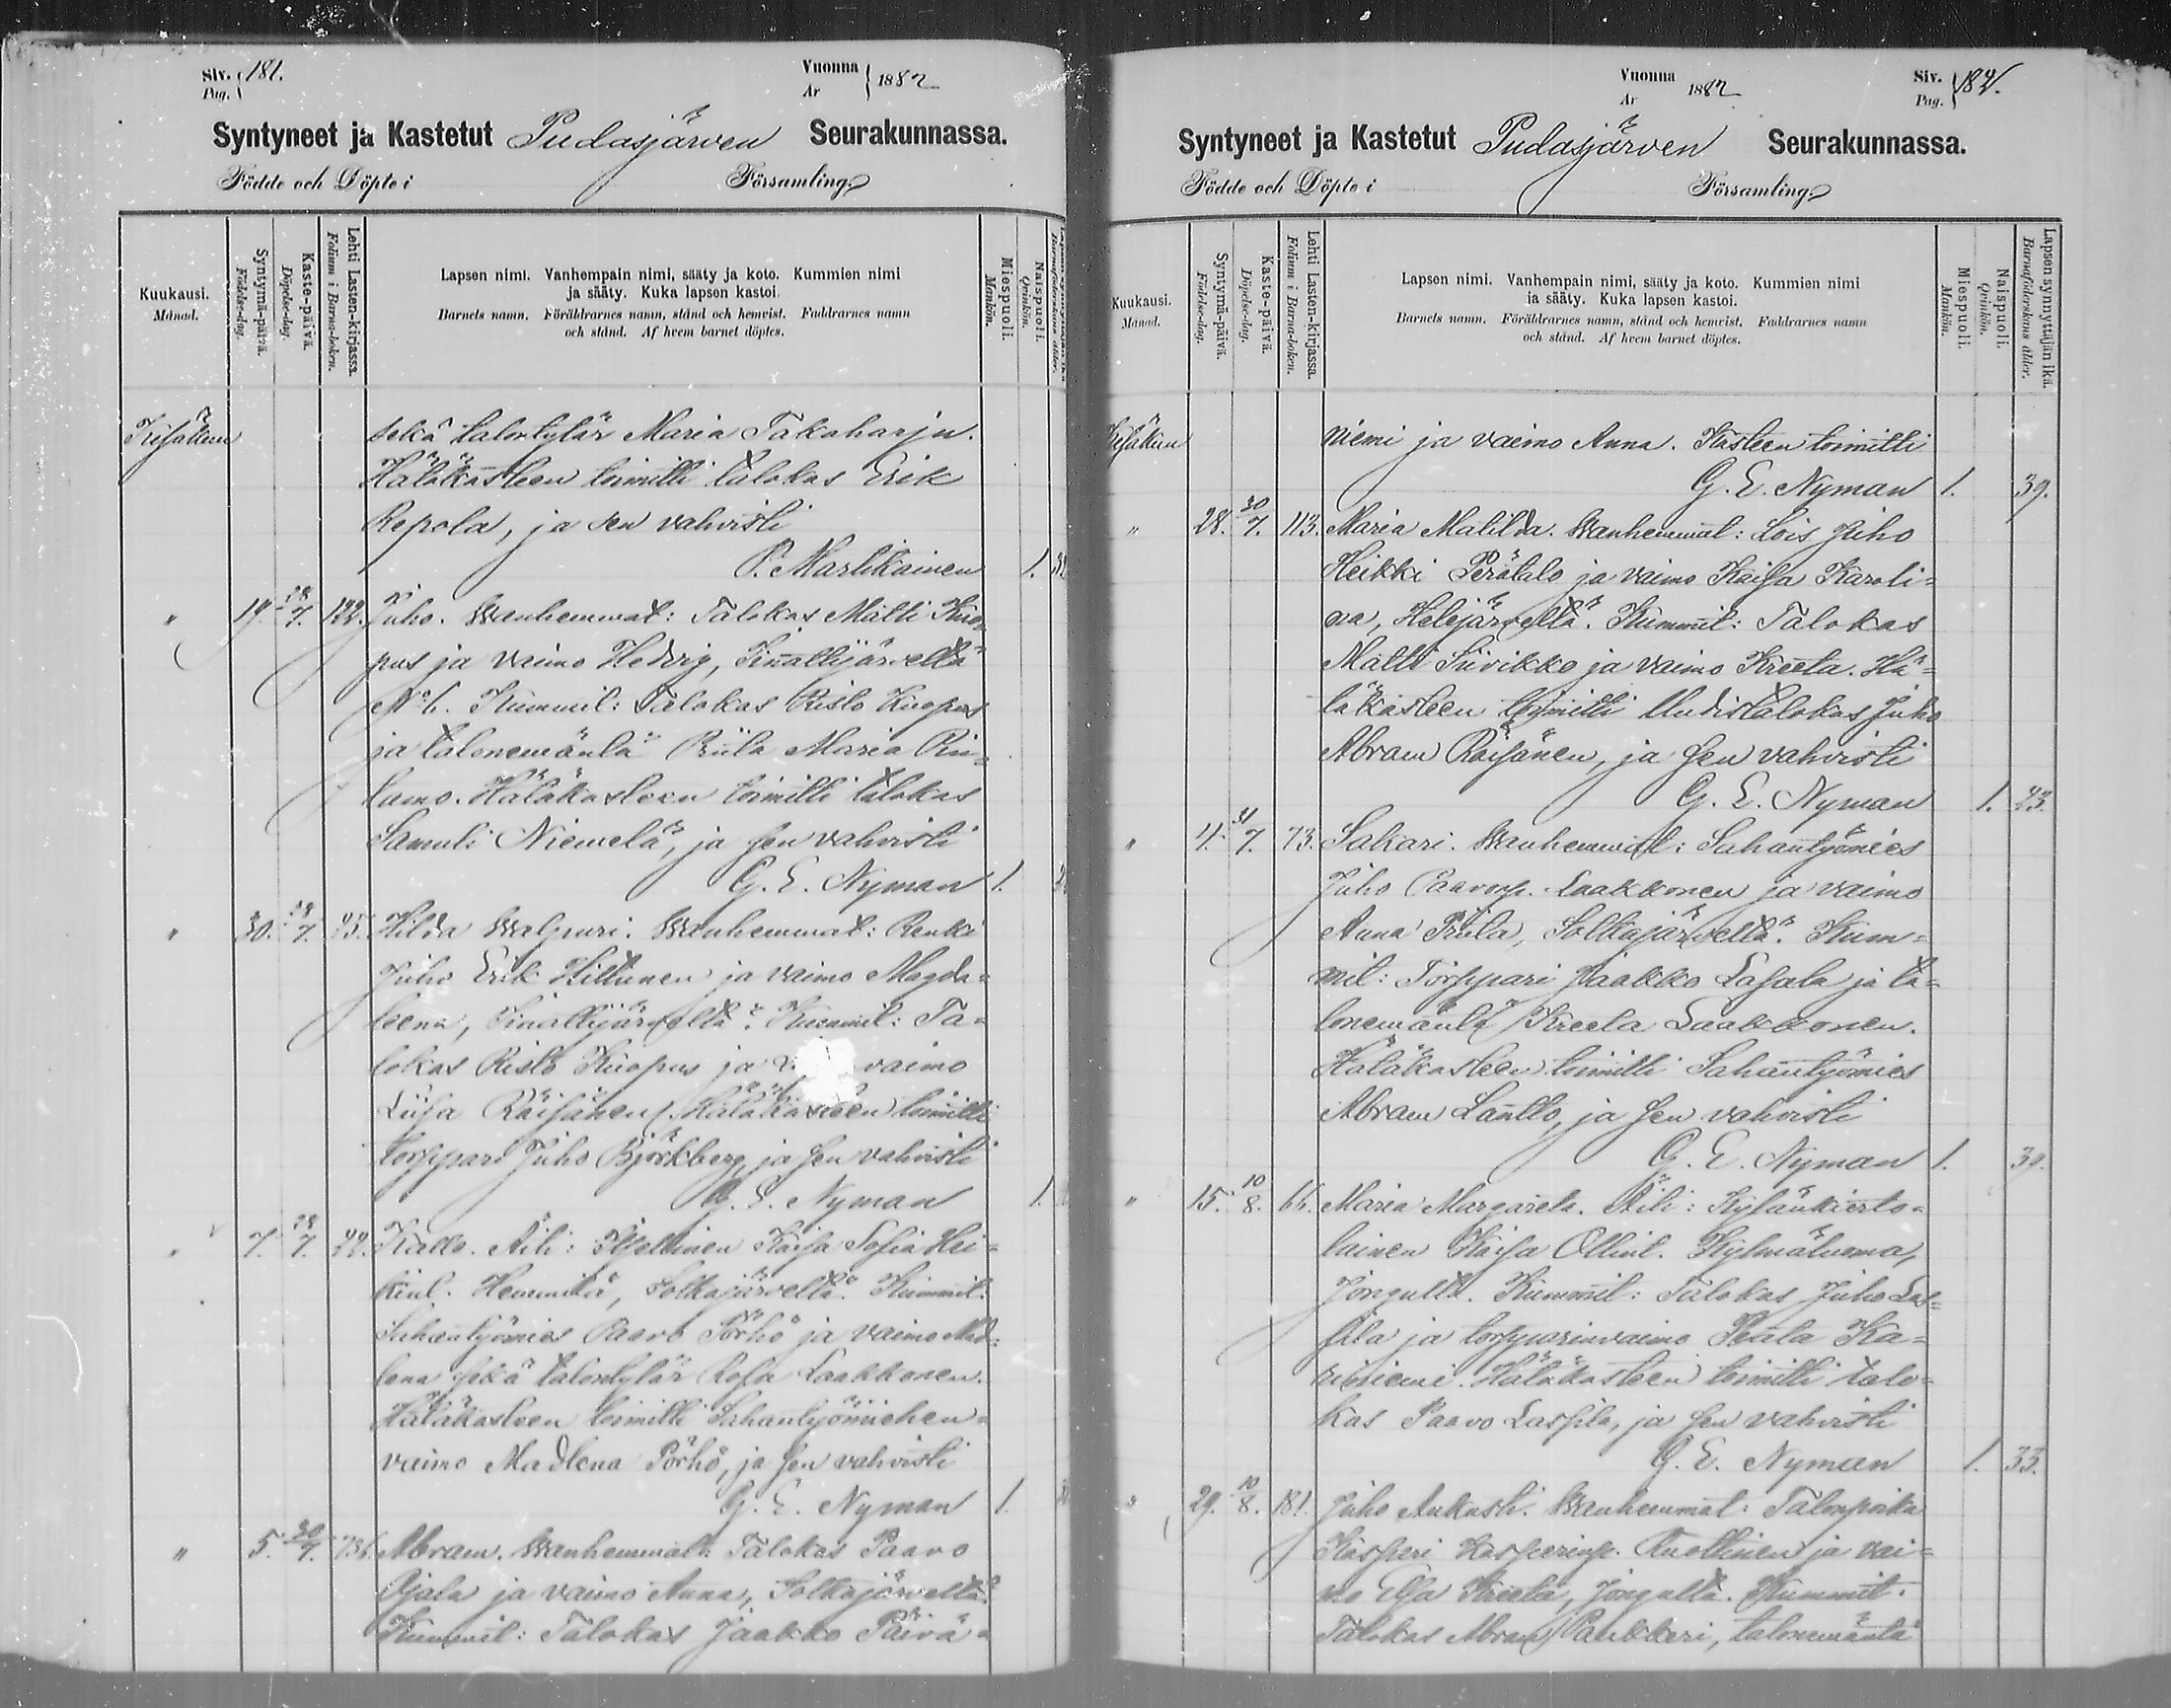 Siv. Pag. 181.
Vuonna År 1882
Syntyneet ja Kastetut Pudasjärven Seurakunnassa.
Födde och Döpte i Församling.
Kuukausi. Månad.
Syntymä-päivä. Födelse-dag.
Kaste-päivä. Döpelse-dag.
Lehti Lasten-kirjassa. Folium i Barna-boken.
Lapsen nimi. Vanhempain nimi, sääty ja koto. Kummien nimi
ja sääty. Kuka lapsen kastoi.
Barnets namn. Föräldrarnes namn, stånd och hemvist. Faddrarnes namn
och stånd. Af hvem barnet döptes.
Miespuoli. Mankön.
Naispuoli. Qvinkön.
Kesäkuu sekä talontytär Maria Takaharju.
Hätäkasteen toimitti talokas Erik
Repola, ja sen vahvisti
P. Martikainen 1.
" 19. 28/7. 122. Juho. Wanhemmat: Talokas Matti Kuo-
pus ja vaimo Hedvig, Iinattijärveltä
N:o 6. Kummit: Talokas Risto Kuopus
ja talonemäntä Priita Maria Rin-
tamo. Hätäkasteen toimitti talokas
Samuli Niemelä, ja sen vahvisti
G. E. Nyman 1.
" 30. 28/7. 25. Hilda Walpuri. Wanhemmat: Renki
Juho Erik Hiltunen ja vaimo Magda-
leena, Iinattijärveltä. Kummit: Ta-
lokas Risto Kuopus ja vaimo
Liisa Räisänen. Hätäkasteen toimitti
torppari Juho Björkberg, ja sen vahvisti
G. E. Nyman 1.
" 7. 28/7. 22. Kalle. Äiti: Itsellinen Kaisa Sofia Hei-
kint. Hemmilä, Sotkajärveltä. Kummit:
Sahantyömies Paavo Pörhö ja vaimo Mad-
lena sekä talontytär Rosa Laakkonen.
Hätäkasteen toimitti Sahantyömiehen-
vaimo Madlena Pörhö, ja sen vahvisti
G. E. Nyman 1.
" 5. 30/7. 136. Abram. Wanhemmat: Talokas Paavo
Ojala ja vaimo Anna, Sotkajärveltä.
Kummit: Talokas Jaakko Päivä-
Vuonna År 1882
Siv. Pag. 182.
Syntyneet ja Kastetut Pudasjärven Seurakunnassa.
Födde och Döpte i Församling.
Kuukausi. Månad.
Syntymä-päivä. Födelse-dag.
Kaste-päivä. Döpelse-dag.
Lehti Lasten-kirjassa. Folium i Barna-boken.
Lapsen nimi. Vanhempain nimi, sääty ja koto. Kummien nimi
ja sääty. Kuka lapsen kastoi.
Barnets namn. Föräldrarnes namn, stånd och hemvist. Faddrarnes namn
och stånd. Af hvem barnet döptes.
Miespuoli. Mankön.
Naispuoli. Qvinkön.
Lapsen synnyttäjän ikä. Barnaföderskans ålder.
Kesäkuu niemi ja vaimo Anna. Kasteen toimitti
G. E. Nyman 1. 39.
" 28. 30/7. 113. Maria Matilda. Wanhemmat: Lois Juho
Heikki Perätalo ja vaimo Kaisa Karoli-
na, Hetejärveltä. Kummit: Talokas
Matti Siivikko ja vaimo Kreeta. Hä-
täkasteen toimitti Uudistalokas Juho
Abram Räisänen, ja sen vahvisti
G. E. Nyman 1. 23.
" 4. 31/7. 73. Sakari. Wanhemmat: Sahantyömies
Juho Paavonp. Laakkonen ja vaimo
Anna Priita, Sotkajärveltä. Kum-
mit: Torppari Jaakko Lasala ja ta-
lonemäntä Kreeta Laakkonen.
Hätäkasteen toimitti Sahantyömies
Abram Lantto, ja sen vahvisti
G. E. Nyman 1. 39.
" 15. 10/8. 66. Maria Margareta. Äiti: Kylänkierto-
lainen Kaisa Ollint. Kylmäluoma,
Jongulta. Kummit: Talokas Juho Las-
sila ja torpparinvaimo Peata Ka-
riniemi. Hätäkasteen toimitti talo-
kas Paavo Lassila, ja sen vahvisti
G. E. Nyman 1. 33.
" 29. 10/8. 181. Juho Aukusti. Wanhemmat: Talonpoika
Kasperi Kasperinp. Ruottinen ja vai-
mo Elsa Kreeta, Jongulta. Kummit:
Talokas Abram Pankkeri, talonemäntä